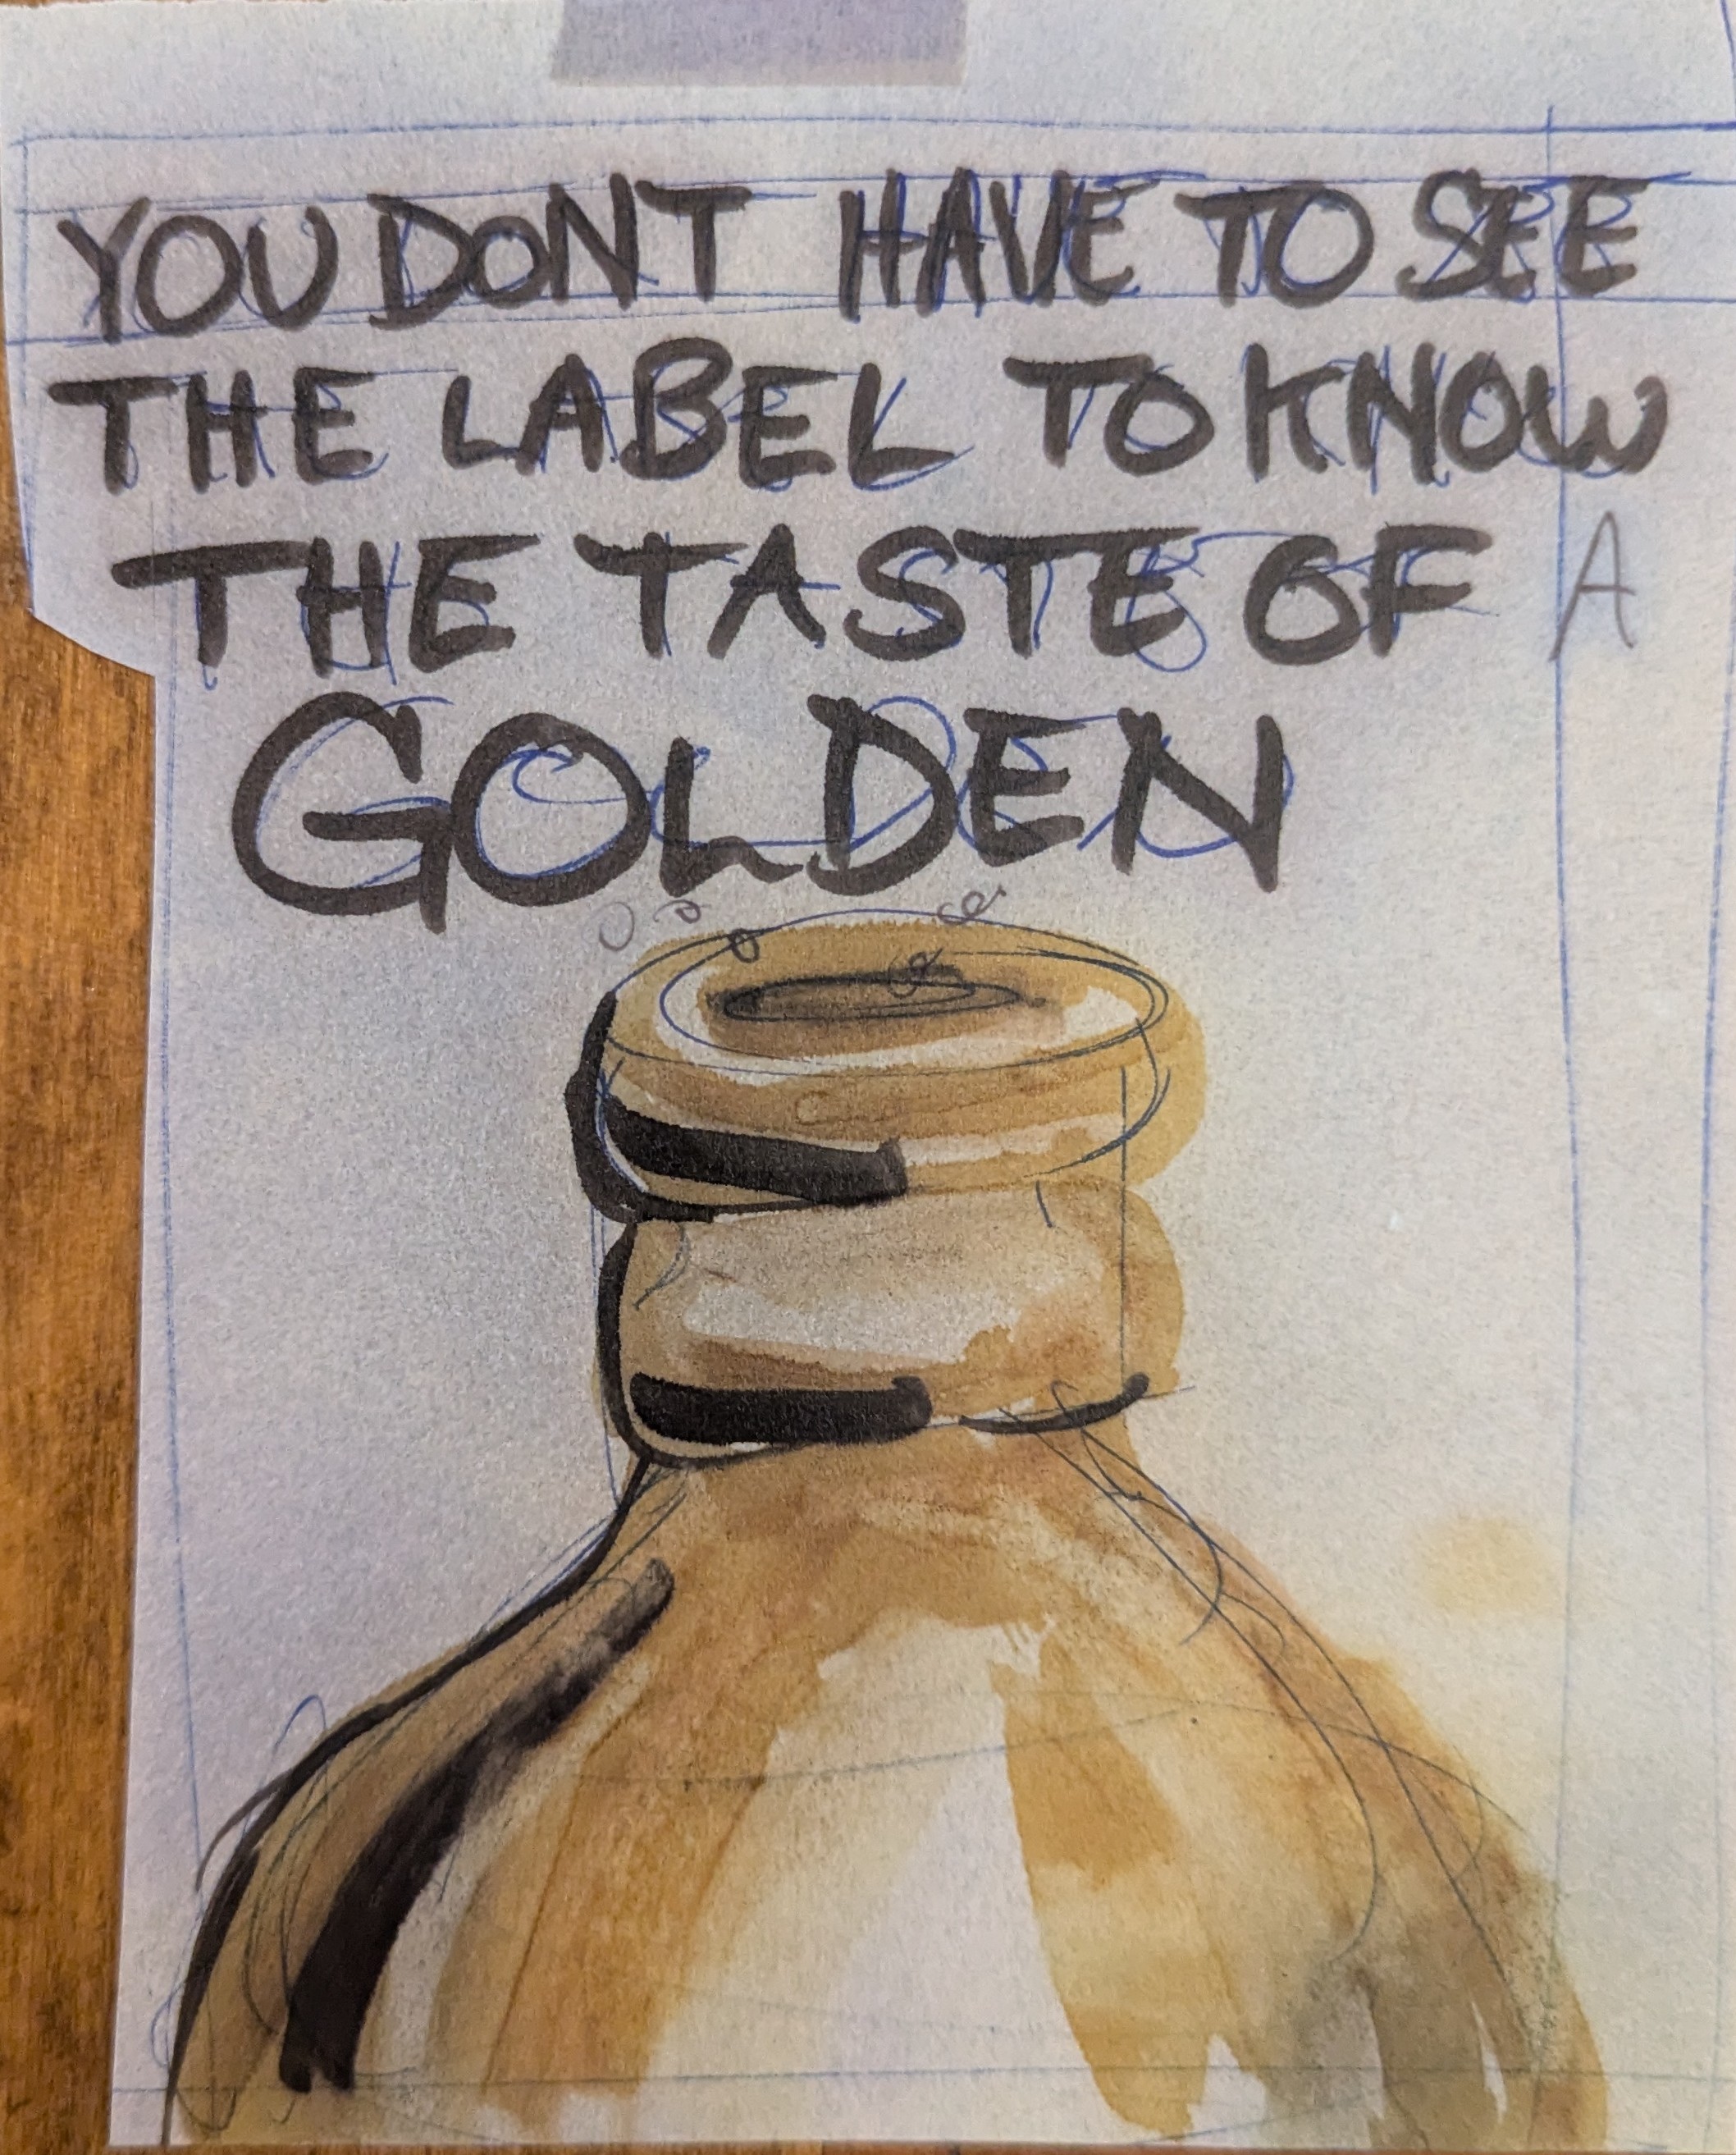 YOU DONT HAVE TO SEE
THE LABEL TO KNOW
THE TASTE OF A
GOLDEN